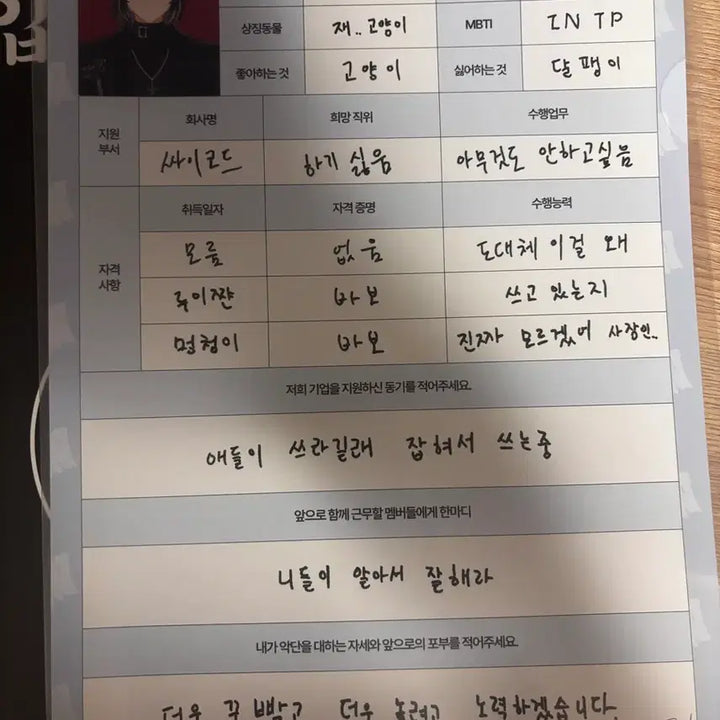 입
상징동물 재.. 고양이 MBTI INTP
좋아하는 것 고양이 싫어하는 것 달팽이
지원 부서
회사명 희망 직위 수행업무
싸이코드 하기 싫음 아무것도 안하고싶음
자격 사항
취득일자 자격 증명 수행능력
모름 없음 도대체 이걸 왜
루이쨘 바보 쓰고 있는지
멍청이 바보 진짜 모르겠어 사장인..
저희 기업을 지원하신 동기를 적어주세요.
애들이 쓰라길래 잡혀서 쓰는중
앞으로 함께 근무할 멤버들에게 한마디
니들이 알아서 잘해라
내가 악단을 대하는 자세와 앞으로의 포부를 적어주세요.
더욱 꾸 빰고 더욱 놀려고 노력하겠습니다